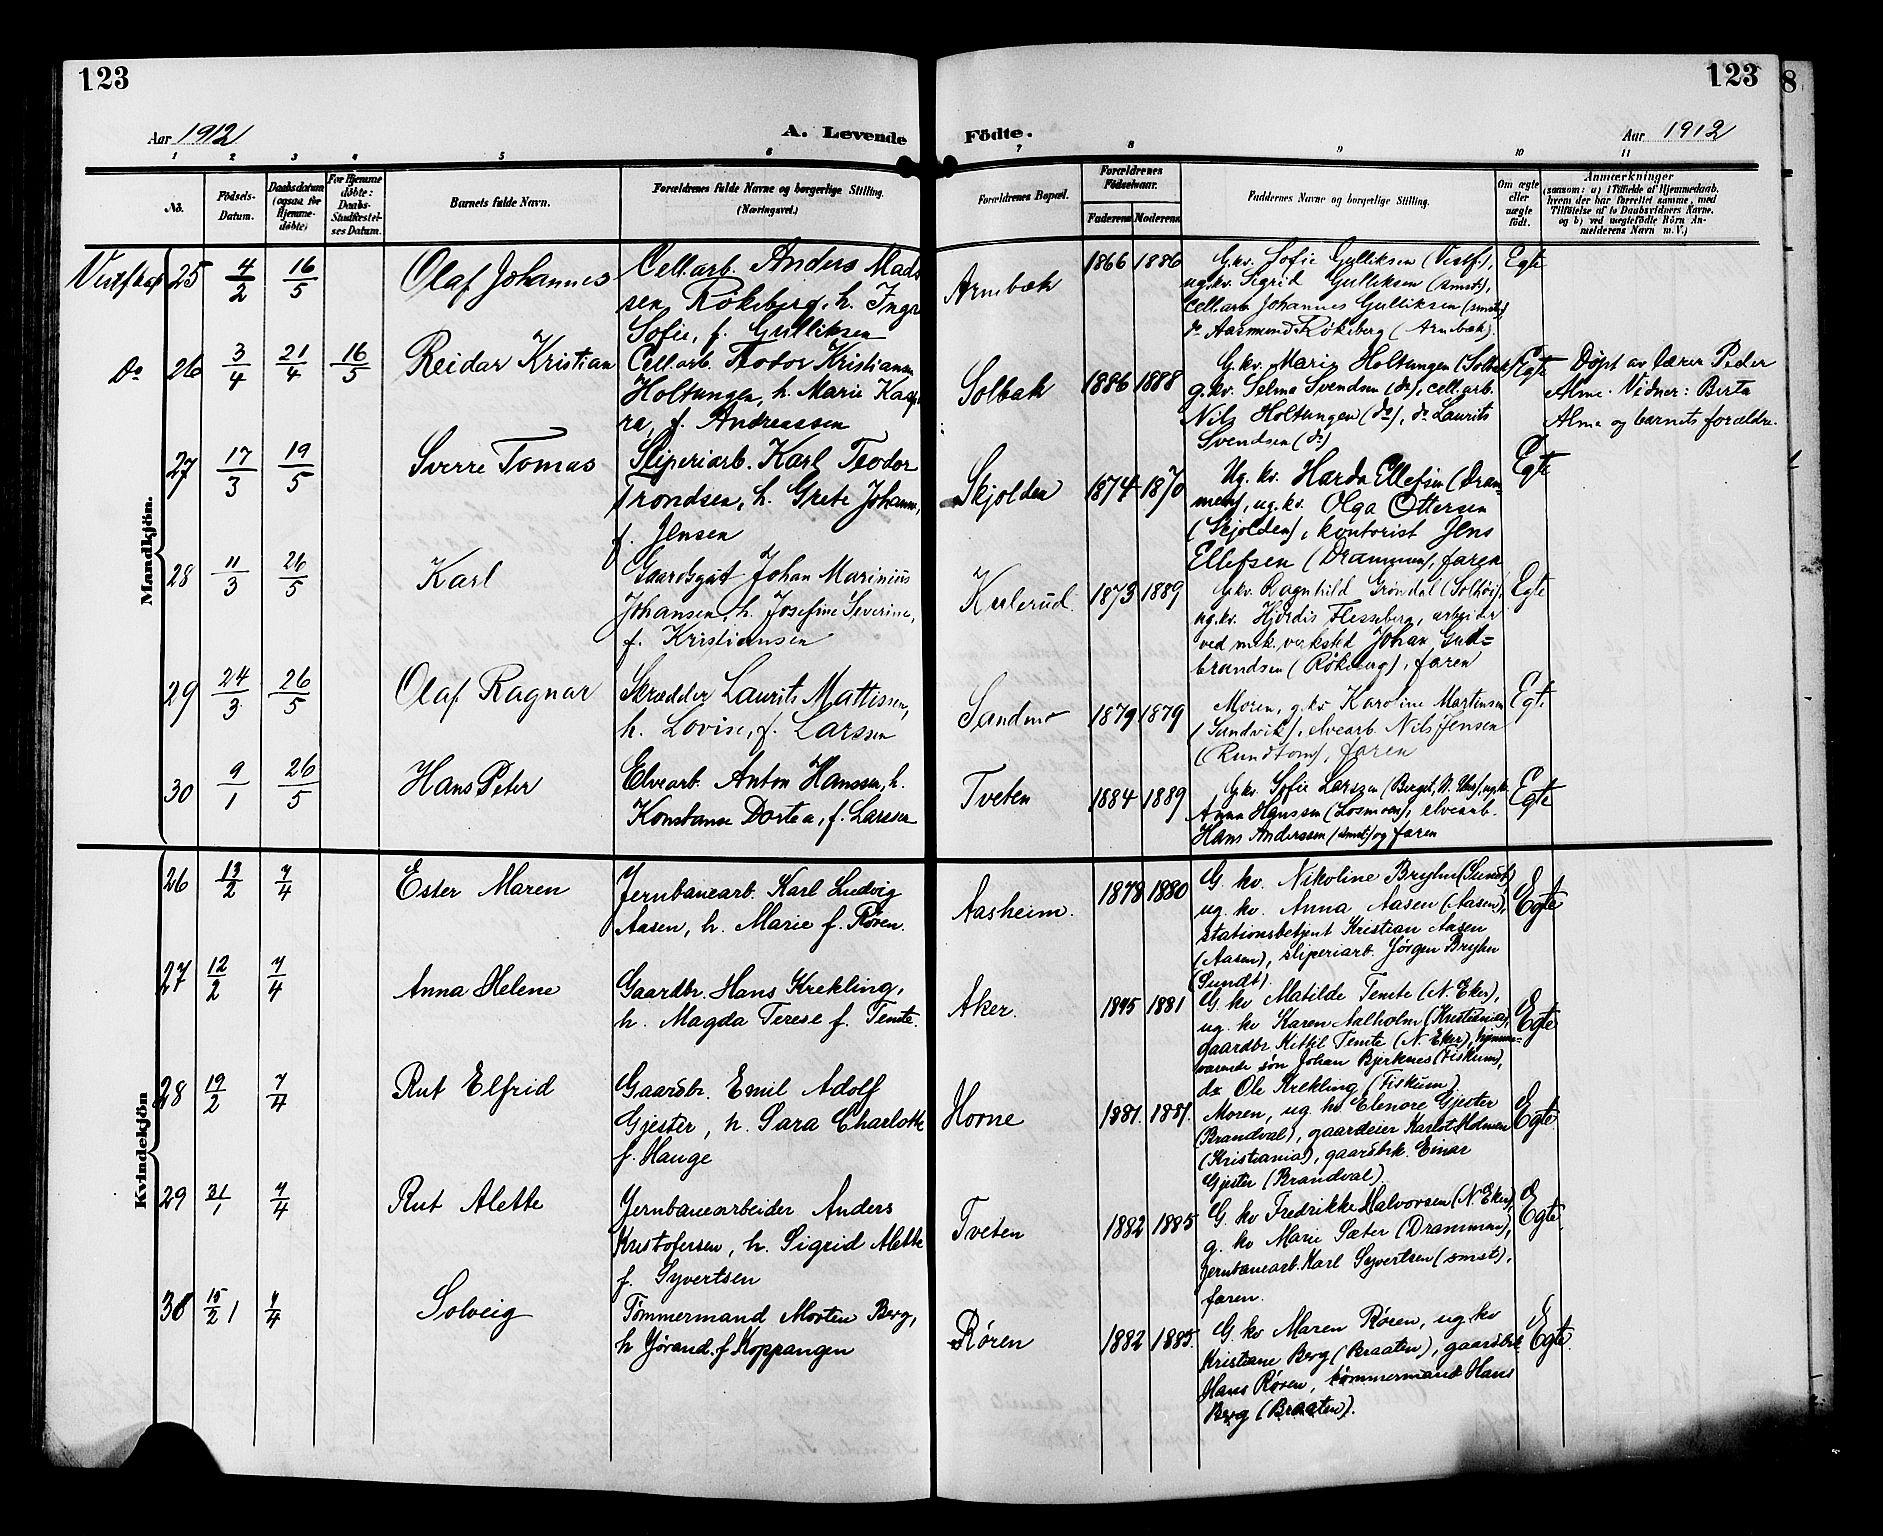 123
123
8
Aar 1912
A. Levende
Födte.
Aar 1912
1 2 3 4 5 6 7 8 9 10 11
No.
Födsels-
Datum.
Daabsdatum
(ogsaa for
Hjemme-
døbte)
For Hjemme
döbte:
Daabs-
Stadfæstel-
ses Datum.
Barnets fulde Navn.
Forældrenes fulde Navne og borgerlige Stilling.
(Næringsvei.)
Forældrenes Bopæl.
Forældrenes
Födselsaar.
Faderens
Moderens
Faddernes Navne og borgerlige Stilling.
Om ægte
eller
uægte
født.
Anmærkninger
(saasom: a) i Tilfælde af Hjemmedaab,
hvem der har forrettet samme, med
Tilføielse af to Daabsvidners Navne,
og b) ved uægtefødte Börn An-
melderens Navn m. V.)
Mandkjön.
25 4/2 16/5
Olaf Johannes
Cell.arb. Anders Mad-
sen Røkeberg, h. Inga
Sofie, f. Gulliksen
Arnebæk
1866 1886
G.kv. Sofie Gulliksen (Vestf.),
ug.kv. Sigrid Gulliksen (smst),
cell.arb Johannes Gulliksen (smst)
do Aasmund Røkeberg (Arnebæk).
Egte
Do 26 3/4 21/4 16/5
Reidar Kristian
Cell.arb. Teodor Kristiansen
Holtungen, h. Marie Kaspa-
ra, f. Andreassen
Solbak
1886 1888
G.kv. Marie Holtungen (Solbak)
g.kv. Selma Svendsen (do), cell.arb.
Nils Holtungen (do), do Laurits
Svendsen (do)
Egte
Døpt av lærer Peder
Alme. Vidner: Berta
Alme og barnets forældre.
27 17/3 19/5
Sverre Tomas
Sliperiarb. Karl Teodor
Trondsen, h. Grete Johanne,
f. Jensen
Skjolden
1874 1870
Ug. kv. Harda Ellefsen (Dram-
men), ug.kv. Olga Ottersen
(Skjolden), kontorist Jens
Ellefsen (Drammen), faren
Egte
28 11/3 26/5
Karl
Gaardsgut Johan Marinius
Johansen, h. Josefine Severine,
f. Kristiansen
Kulerud.
1873 1889
G.kv. Ragnhild Grøndal (Solhöi),
ug.kv. Hjørdis Flesseberg, arbeider
ved mek. verksted Johan Gud-
brandsen (Røkeberg), faren
Egte
29 24/3 26/5
Olaf Ragnar
Skrædder Laurits Mattissen,
h. Lovise, f. Larssen
Sandmo
1879 1879
Moren, g.kv. Karoline Martinsen
(Sandvik), elvearb. Nils Jensen
(Rundtom), faren
Egte
30 9/1 26/5
Hans Peter
Elvearb. Anton Hanssen, h.
Konstanse Dortea, f. Larssen
Tveten
1884 1889
G.kv. Sofie Larssen
Anna Hanssen (Losmoen), elvearb.
Hans Anderssen (smst) og faren
Egte
Kvindekjön
26 13/2 7/4
Ester Maren
Jernbanearb. Karl Ludvig
Aasen, h. Marie f. Røren.
Aasheim.
1878 1880
G. kv. Nikoline Bryhn (Sundt)
ug. kv. Anna Aasen (Aasen),
stationsbetjent Kristian Aasen
(Aasen), sliperiarb. Jørgen Bryhn
(Sundt).
Egte
27 12/2 7/4
Anna Helene
Gaardbr. Hans Krekling,
h. Magda Terese f. Temte.
Aker.
1881
G. kv Matilde Temte (N. Eker),
ug. kv Karen Aalholm (Kristiania),
gaardbr Kittil Temte (N. Eker), hjemme-
værende søn Johan Bjerknes (Fiskum),
do Ole Krekling (Fiskum)
Egte
28 19/2 7/4
Rut Elfrid
Gaardbr. Emil Adolf
Gjester, h. Sara Charlotte
f. Hauge
Horne
1881. 1881.
Moren, ug. kv. Elenore Gjester
(Brandval), gaardeier Karlot Holman
(Kristiania), gaardbrk. Einar
Gjester (Brandval).
Egte
29 31/1 7/4
Rut Alette
Jernbanearbeider Anders
Kristofersen, h. Sigrid Alette
f. Syvertsen
Tveten
1882 1885
G. kv Fredrikke Halvorsen (N. Eker),
g. kv Marie Sæter (Drammen),
jernbanearb. Karl Syvertsen (smst),
faren.
Egte
30 15/2 1 7/4
Solveig
Tømmermand Morten Berg,
h Jørand. f Koppangen
Røren
1882 1885.
G. kv Maren Røren, ug. kv
Kristiane Berg (Braaten), gaardbrk
Hans Røren, tømmermand Hans
Berg (Braaten).
Egte.